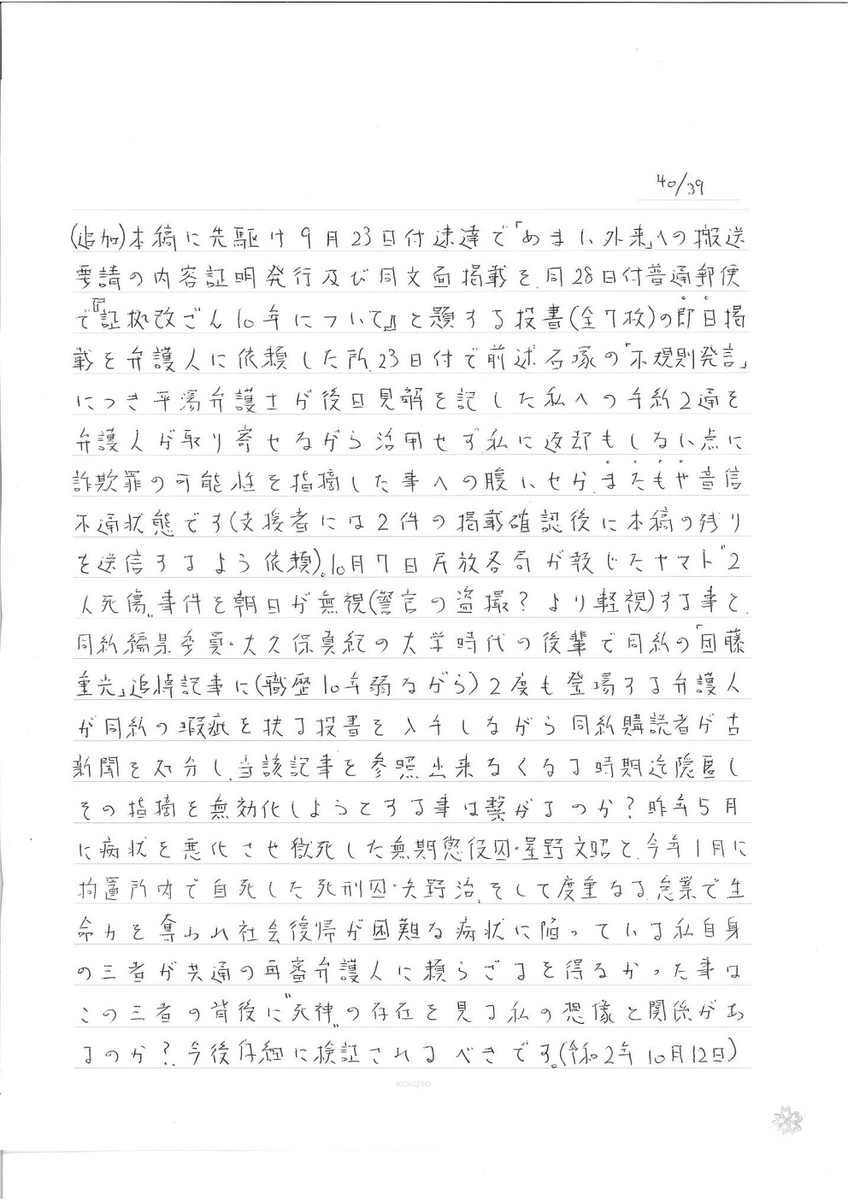 40/39
(追加)本稿に先駆け9月23日付速達で「めまい外来」への搬送
要請の内容証明発行及び同文面掲載を、同28日付普通郵便
で『「証拠改ざん10年」について』と題する投書(全7枚)の即日掲
載を弁護人に依頼した所、23日付で前述石塚の「不規則発言」
につき平湯弁護士が後日見解を記した私への手紙2通を
弁護人が取り寄せながら活用せず私に返却もしない点に
詐欺罪の可能性を指摘した事への腹いせか、またもや音信
不通状態です(支援者には2件の掲載確認後に本稿の残り
を送信するよう依頼)。10月7日民放各局が報じたヤマト〝2
人死傷〟事件を朝日が無視(警官の盗撮?より軽視)する事と、
同紙編集委員・大久保真紀の大学時代の後輩で同紙の「団藤
重光」追悼記事に(職歴10年弱ながら)2度も登場する弁護人
が同紙の瑕疵を扶る投書を入手しながら同紙購読者が古
新聞を処分し、当該記事を参照出来なくなる時期迄隠匿し
その指摘を無効化しようとする事は繋がるのか?昨年5月
に病状を悪化させ獄死した無期懲役囚・星野文昭と、今年1月に
拘置所内で自死した死刑囚・矢野治、そして度重なる怠業で生
命力を奪われ社会復帰が困難な病状に陥っている私自身
の三者が共通の再審弁護人に頼らざるを得なかった事は
この三者の背後に〝死神〟の存在を見る私の想像と関係があ
るのか?今後仔細に検証されるべきです。(令和2年10月12日)
KOKUYO